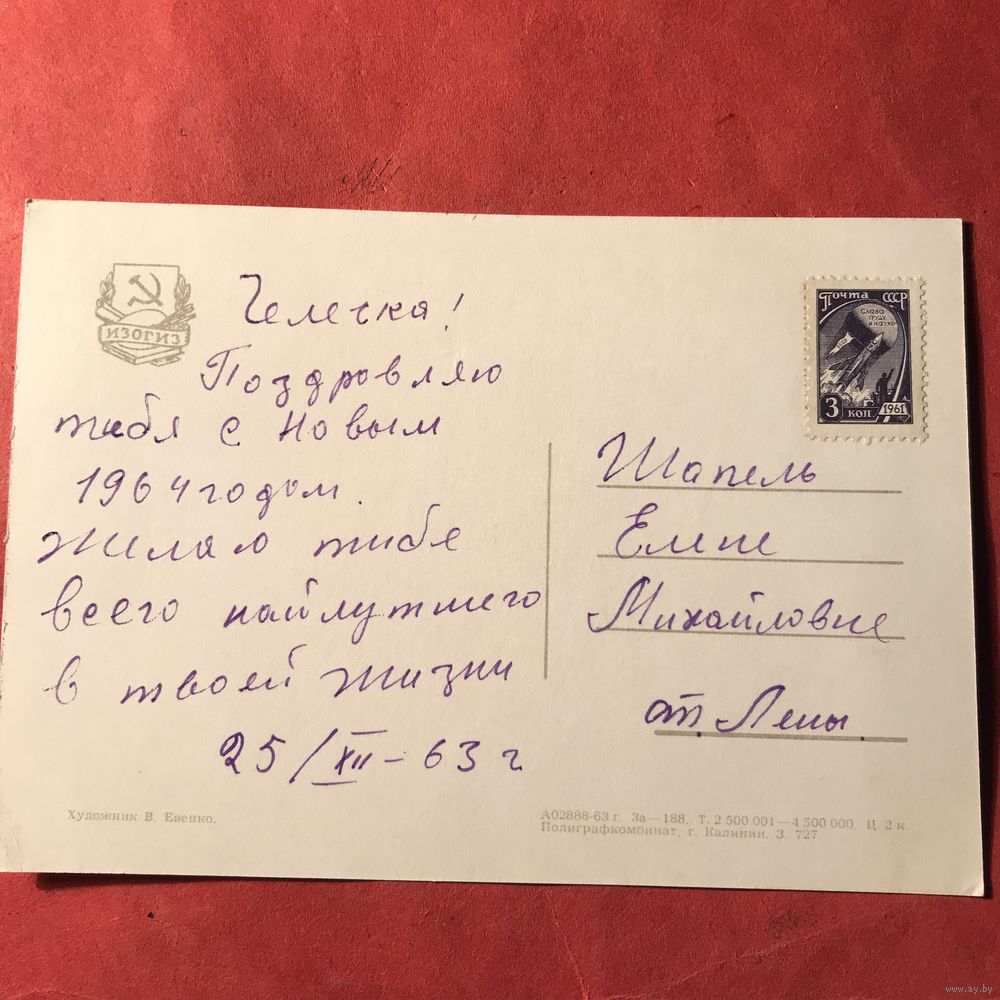 ИЗОГИЗ
Гелечка!
Поздровляю
тибя с Новым
1964 годом.
Желаю тибе
всего найлутжшего
в твоей жизни
25/XII – 63 г
Художник В. Евенко.
Почта СССР
Слава
труду
и науке
3 коп. 1961
Шапель
Елене
Михайловне
от Лены.
А02888-63 г. За—188. Т. 2 500 001—4 500 000. Ц. 2 к.
Полиграфкомбинат, г. Калинин. З. 727.
www.ay.by